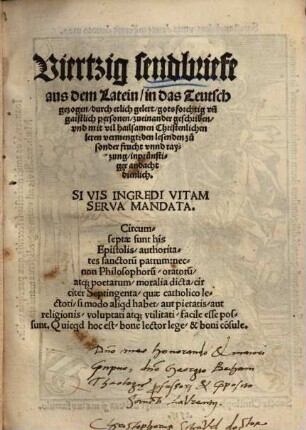 Viertzig sendbriefe
aus dem Latein / in das Teutsch
gezogen / durch etlich gelert / gotsforchtig vñ
gaistlich personen / zueinander geschriben /
vnd mit vil hailsamen Christenlichen
leren vermengt: den lesenden zů
sonder frucht vnnd ray-
zung / inprünsti-
ger andacht
dienlich.
SI VIS INGREDI VITAM
SERVA MANDATA.
Circum-
septæ sunt his
Epistolis / authorita-
tes sanctorũ patrum: nec-
non Philosophorũ / oratorũ /
atq; poetarum / moralia dicta / cir
citer Septingenta / quæ catholico le-
ctori / si modo aliqd habet / aut pietatis / aut
religionis / voluptati atq; vtilitati / facile esse pos-
sunt. Quicqd hoc est / bone lector lege / & boni cõsule.
Dño meo honorando &
dño Georgio Beham
Theologiæ professori & præposito
Sancti Laurentii.
Christophorus Scheurl doctor